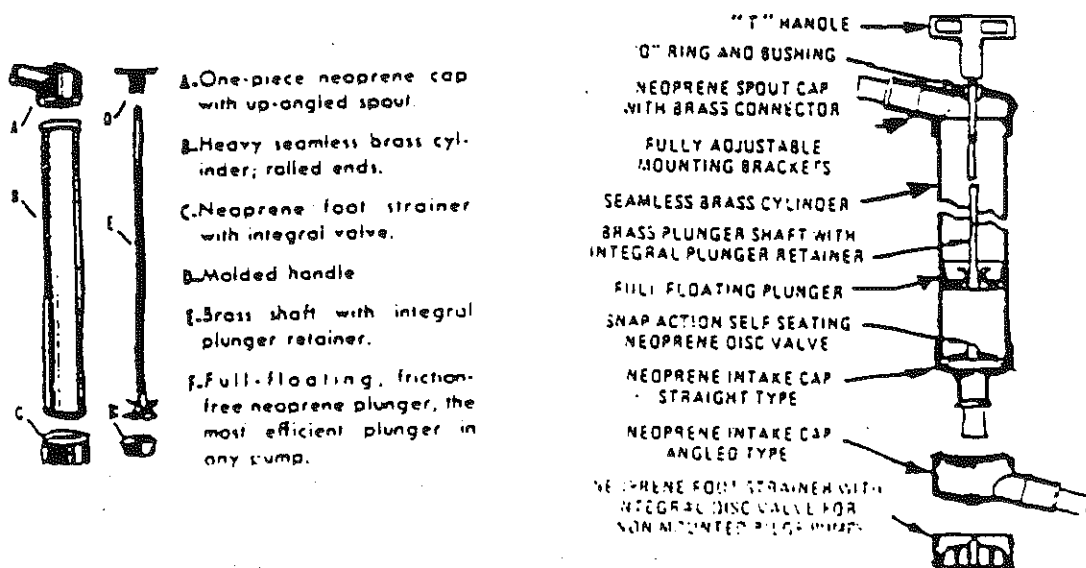 A. One-piece neoprene cap
with up-angled spout.
B. Heavy seamless brass cyl-
inder; rolled ends.
C. Neoprene foot strainer
with integral valve.
D. Molded handle
E. Brass shaft with integral
plunger retainer.
F. Full-floating, friction-
free neoprene plunger, the
most efficient plunger in
any pump.
A
D
B
E
C
F
"T" HANDLE
"O" RING AND BUSHING
NEOPRENE SPOUT CAP
WITH BRASS CONNECTOR
FULLY ADJUSTABLE
MOUNTING BRACKETS
SEAMLESS BRASS CYLINDER
BRASS PLUNGER SHAFT WITH
INTEGRAL PLUNGER RETAINER
FULL FLOATING PLUNGER
SNAP ACTION SELF SEATING
NEOPRENE DISC VALVE
NEOPRENE INTAKE CAP
STRAIGHT TYPE
NEOPRENE INTAKE CAP
ANGLED TYPE
NEOPRENE FOOT STRAINER WITH
INTEGRAL DISC VALVE FOR
NON MOUNTED BILGE PUMPS